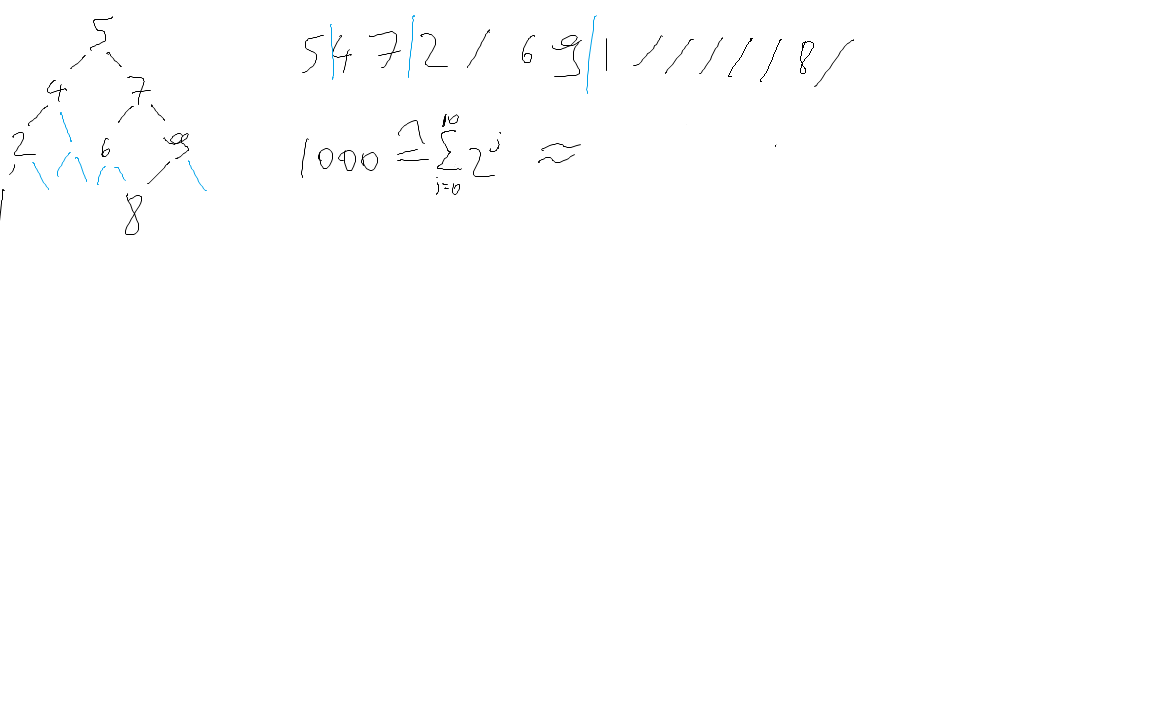 5
4 7
2 6 9
1 8
5 | 4 7 | 2 / 6 9 | 1 / / / / / 8 /
1000 ≙ ∑_{j=0}^{10} 2^j ≈